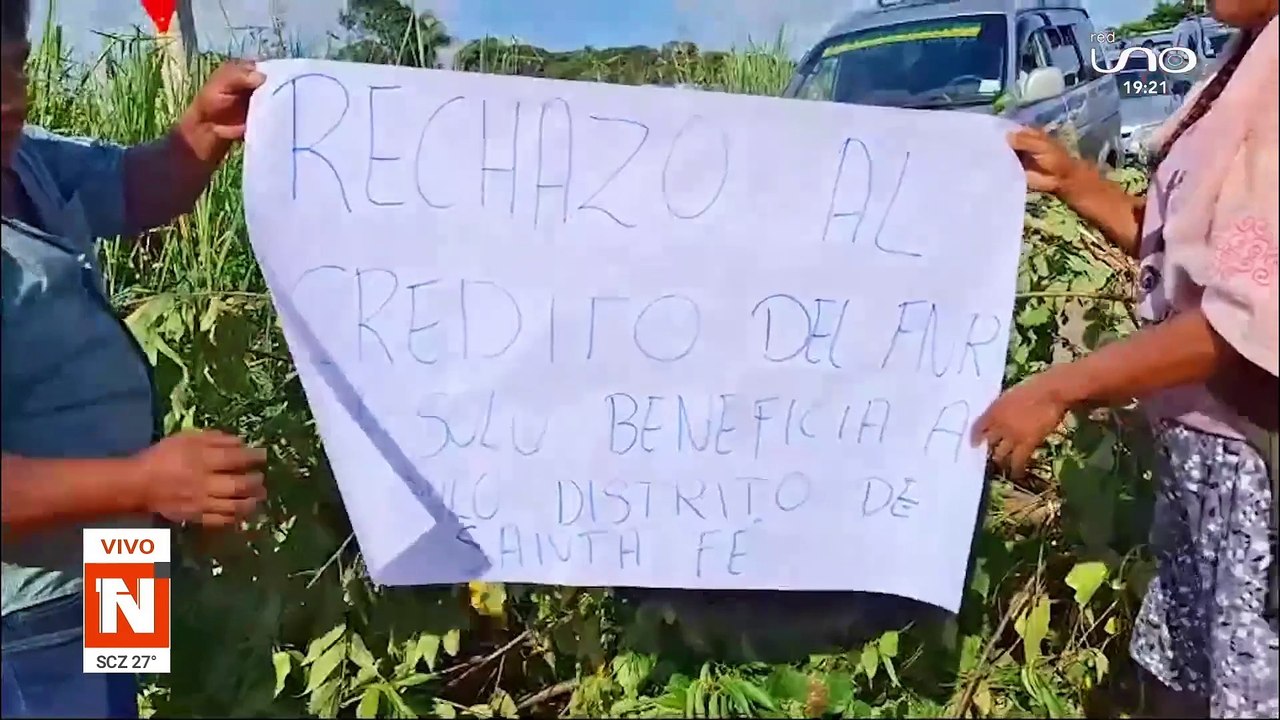 red
UNO
19:21
RECHAZO AL
CREDITO DEL FNR
SOLU BENEFICIA A
DISTRITO DE
SANTA FE
VIVO
N
SCZ 27°